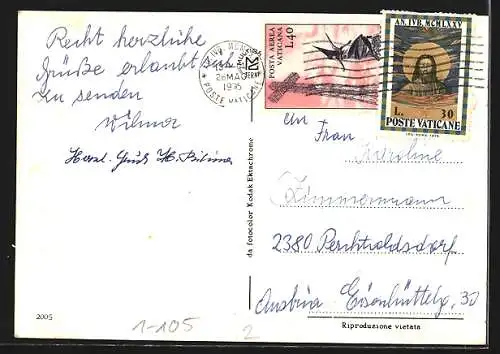 Recht herzliche
Grüße erlaubt sich
zu senden
Wilma
Herzl.
2005
1-105
2
da fotocolor Kodak Ektachrome
POSTA AEREA
VATICANA
L.40
POSTE VATICANE
AN. IVB. MCMLXXV
L. 30
POSTE VATICANE
An Frau
Karoline
Zimmermann
2380 Perchtoldsdorf
Austria Eisenhüttelg. 30
Riproduzione vietata